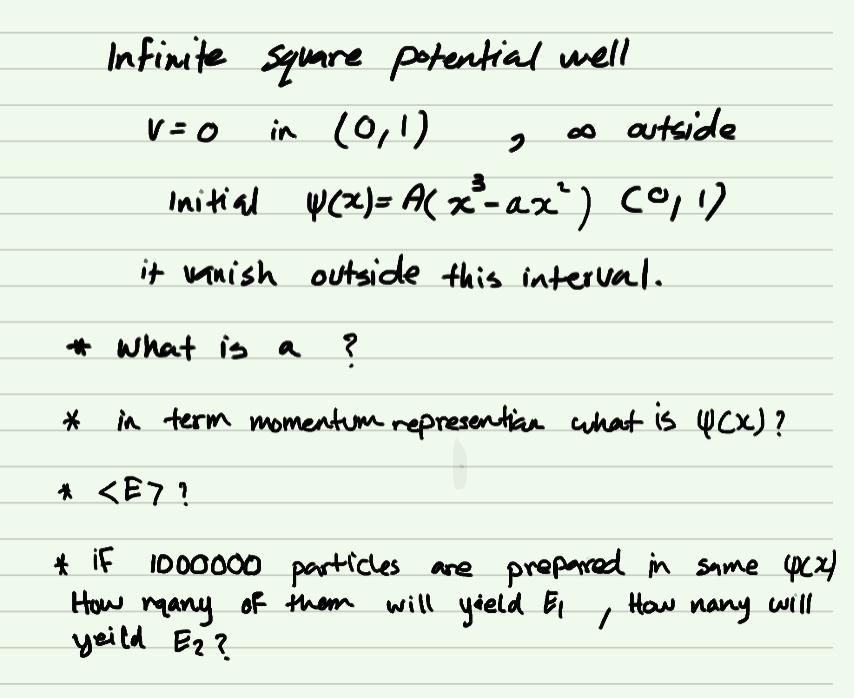 Infinite square potential well
V=0 in (0,1) , ∞ outside
Initial ψ(x)= A(x³-ax²) (0,1)
it vanish outside this interval.
* what is a ?
* in term momentum represention what is ψ(x)?
* <E> ?
* if 1000000 particles are prepared in same ψ(x)
How many of them will yield E₁ , How nany will
yeild E₂?